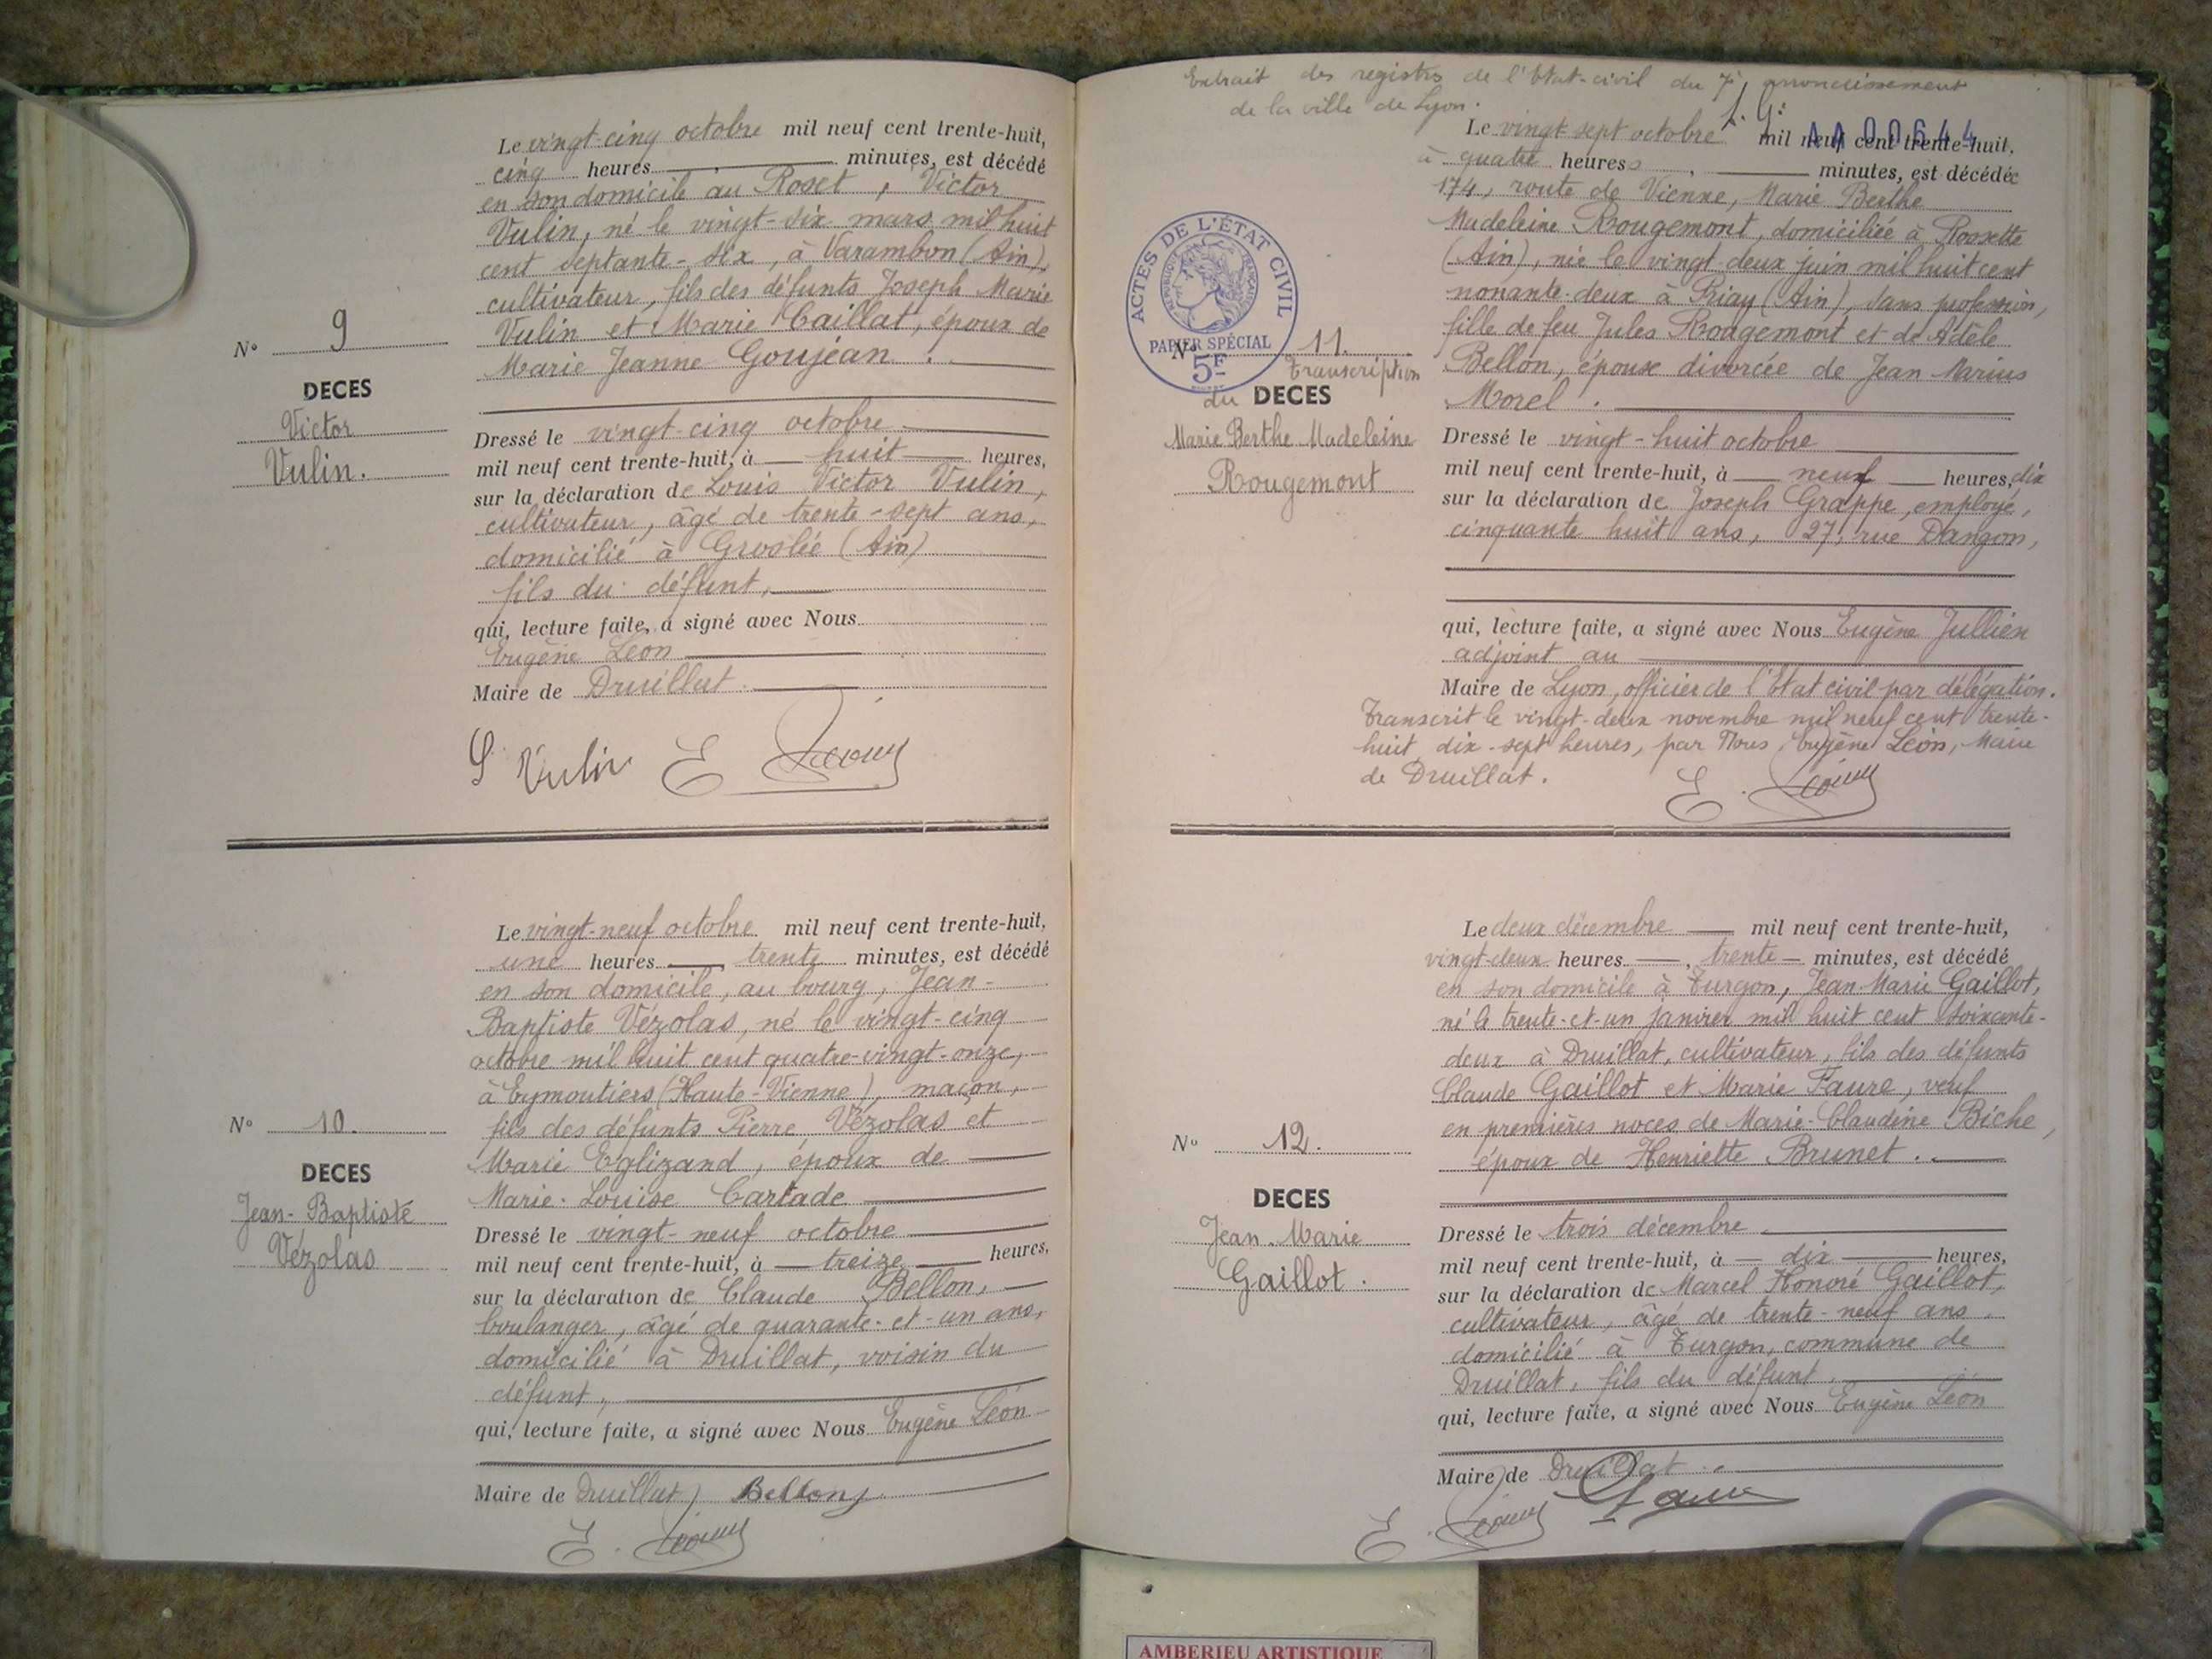 Le vingt-cinq octobre mil neuf cent trente-huit,
cinq heures minutes, est décédé
en son domicile au Roset, Victor
Vulin, né le vingt-six mars mil huit
cent septante-six, à Varambon (Ain),
cultivateur, fils des défunts Joseph Marie
Vulin et Marie Caillat, époux de
Marie Jeanne Goujean.
N° 9
DECES
Victor
Vulin.
Dressé le vingt-cinq octobre
mil neuf cent trente-huit, à huit heures,
sur la déclaration de Louis Victor Vulin,
cultivateur, âgé de trente-sept ans,
domicilié à Groslée (Ain)
fils du défunt,
qui, lecture faite, a signé avec Nous
Eugène Léon
Maire de Druillat.
Vulin E
Le vingt-neuf octobre mil neuf cent trente-huit,
une heures, trente minutes, est décédé
en son domicile, au bourg, Jean-
Baptiste Vézolas, né le vingt-cinq
octobre mil huit cent quatre-vingt-onze,
à Eymoutiers (Haute-Vienne), maçon,
fils des défunts Pierre Vézolas et
Marie Eglizand, époux de
Marie-Louise Cartade
N° 10.
DECES
Jean-Baptiste
Vézolas
Dressé le vingt-neuf octobre
mil neuf cent trente-huit, à treize heures,
sur la déclaration de Claude Bellon,
boulanger, âgé de quarante-et-un ans,
domicilié à Druillat, voisin du
défunt,
qui, lecture faite, a signé avec Nous Eugène Léon
Maire de Druillat Bellon
E. Léon
Extrait des registres de l'Etat-civil du 7è arrondissement
de la ville de Lyon.
AA00644
Le vingt-sept octobre mil neuf cent trente-huit,
à quatre heures, minutes, est décédée
174, route de Vienne, Marie Berthe
Madeleine Rougemont, domiciliée à Rossette
(Ain), née le vingt-deux juin mil huit cent
nonante-deux à Priay (Ain), sans profession,
fille de feu Jules Rougemont et de Adèle
Bellon, épouse divorcée de Jean Marius
Morel.
ACTES DE L'ÉTAT CIVIL
RÉPUBLIQUE FRANÇAISE
PAPIER SPÉCIAL
5F
N° 11.
Transcription
du DECES
Marie Berthe Madeleine
Rougemont
Dressé le vingt-huit octobre
mil neuf cent trente-huit, à neuf heures, dix
sur la déclaration de Joseph Grappe, employé,
cinquante huit ans, 27, rue Dangon,
qui, lecture faite, a signé avec Nous Eugène Jullien
adjoint au
Maire de Lyon, officier de l'Etat civil par délégation.
Transcrit le vingt-deux novembre mil neuf cent trente-
huit, dix-sept heures, par Nous, Eugène Léon, Maire
de Druillat.
E. Léon
Le deux décembre mil neuf cent trente-huit,
vingt-deux heures, trente minutes, est décédé
en son domicile à Turgon, Jean-Marie Gaillot,
né le trente-et-un janvier mil huit cent soixante-
deux à Druillat, cultivateur, fils des défunts
Claude Gaillot et Marie Faure, veuf
en premières noces de Marie-Claudine Biche,
époux de Henriette Brunet.
N° 12.
DECES
Jean-Marie
Gaillot.
Dressé le trois décembre
mil neuf cent trente-huit, à dix heures,
sur la déclaration de Marcel Honoré Gaillot,
cultivateur, âgé de trente-neuf ans,
domicilié à Turgon, commune de
Druillat, fils du défunt,
qui, lecture faite, a signé avec Nous Eugène Léon
Maire de Druillat.
E. Léon
AMBERIEU ARTISTIQUE